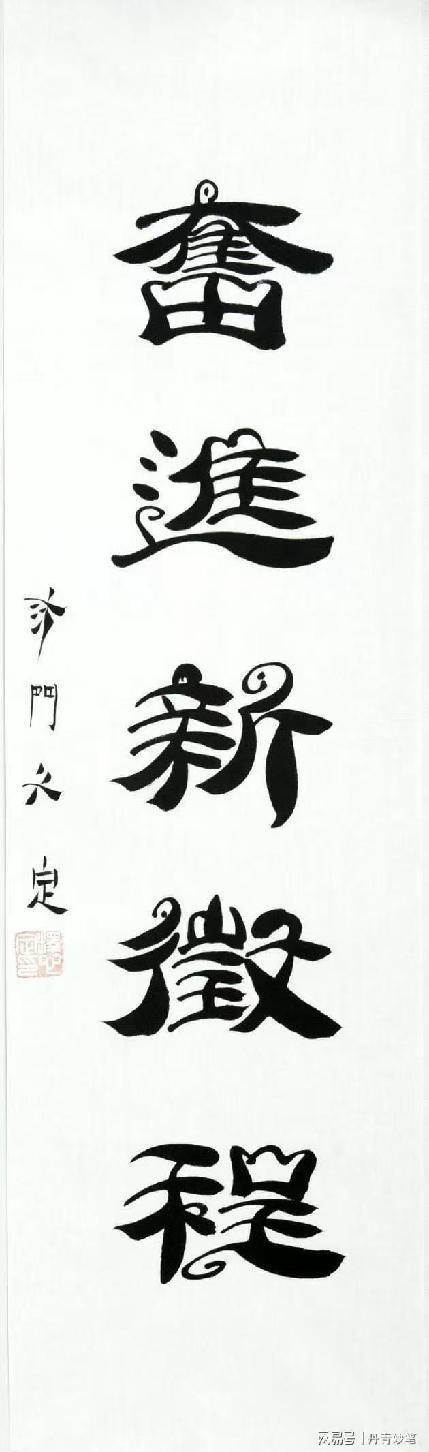 奮進新徵程
沙門久定
网易号 | 丹青妙笔